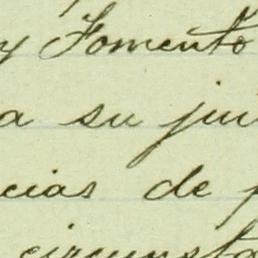 y Fomento
a su jui
cias de p
circunsta